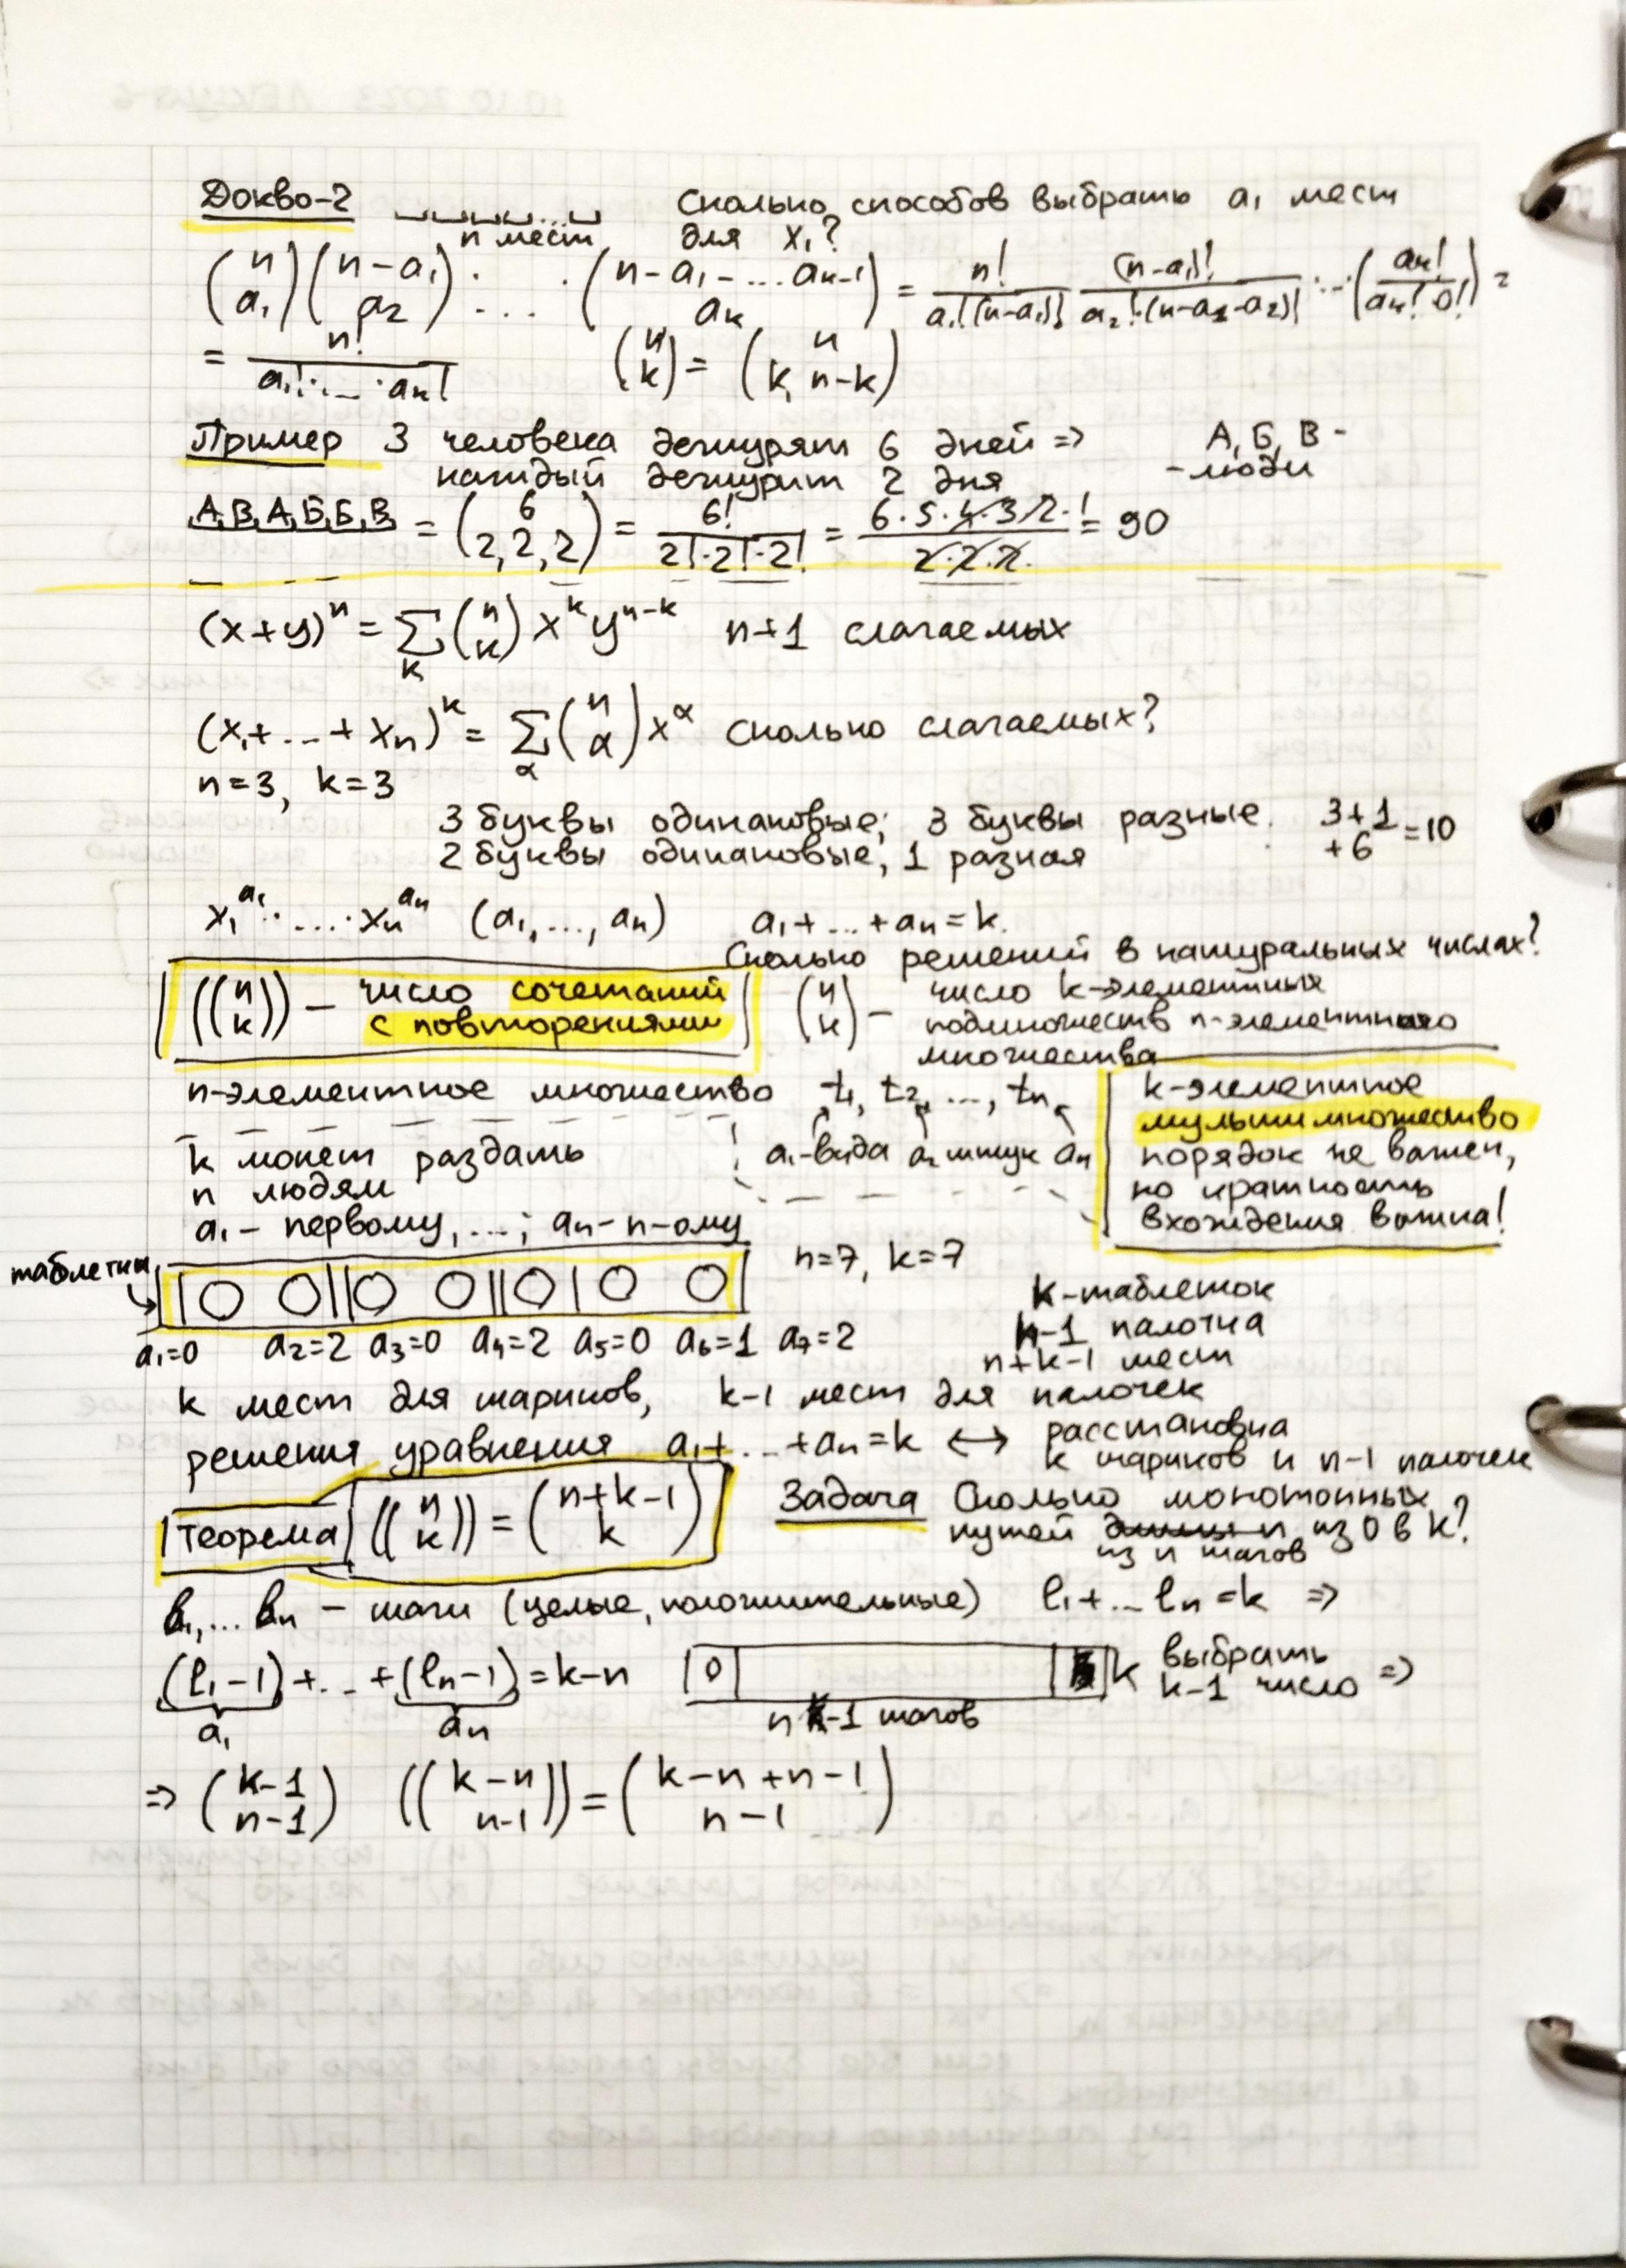 Докво-2 Сколько способов выбрать a₁ мест
n мест для x₁?
(n a₁)(n-a₁ a₂)·...·(n-a₁-...aₖ₋₁ aₖ) = n!/(a₁!(n-a₁)!) (n-a₁)!/(a₂!·(n-a₁-a₂)!) ·..·(aₖ!/(aₖ! 0!)) =
= n!/(a₁!·...·aₖ!) (n k) = (n k, n-k)
Пример 3 человека дежурят 6 дней => А, Б, В -
каждый дежурит 2 дня - люди
А,В,А,Б,Б,В = (6 2,2,2) = 6!/(2!·2!·2!) = 6·5·4·3·2·1/(2·2·2) = 90
(x+y)ⁿ = Σₖ (n k) xᵏ yⁿ⁻ᵏ n+1 слагаемых
(x₁+...+xₙ)ᵏ = Σ_α (n α) x^α Сколько слагаемых?
n=3, k=3
3 буквы одинаковые; 3 буквы разные. 3+1
2 буквы одинаковые, 1 разная +6 =10
x₁^a₁·....·xₙ^aₙ (a₁,...,aₙ) a₁+...+aₙ=k.
Сколько решений в натуральных числах?
((n k)) – число сочетаний с повторениями
(n k) – число k-элементных
подмножеств n-элементного
множества
n-элементное множество t₁, t₂, ..., tₙ
a₁-вида a₂ штук aₙ
k-элементное
мультимножество
порядок не важен,
но кратность
вхождения важна!
k монет раздать
n людям
a₁ – первому, ...; aₙ – n-ому
таблетки
n=7, k=7
a₁=0 a₂=2 a₃=0 a₄=2 a₅=0 a₆=1 a₇=2
k-таблеток
n-1 палочка
n+k-1 мест
k мест для шариков, k-1 мест для палочек
решения уравнения a₁+...+aₙ=k ↔ расстановка
k шариков и n-1 палочек
Теорема ((n k)) = (n+k-1 k)
Задача Сколько монотонных
путей длины n из 0 в k?
из n шагов
l₁,...lₙ – шаги (целые, положительные) l₁+...lₙ=k =>
(l₁-1)+...+(lₙ-1)=k-n 0 k выбрать
a₁ aₙ n-1 шагов k-1 число =>
=> (k-1 n-1) ((k-n n-1)) = (k-n+n-1 n-1)